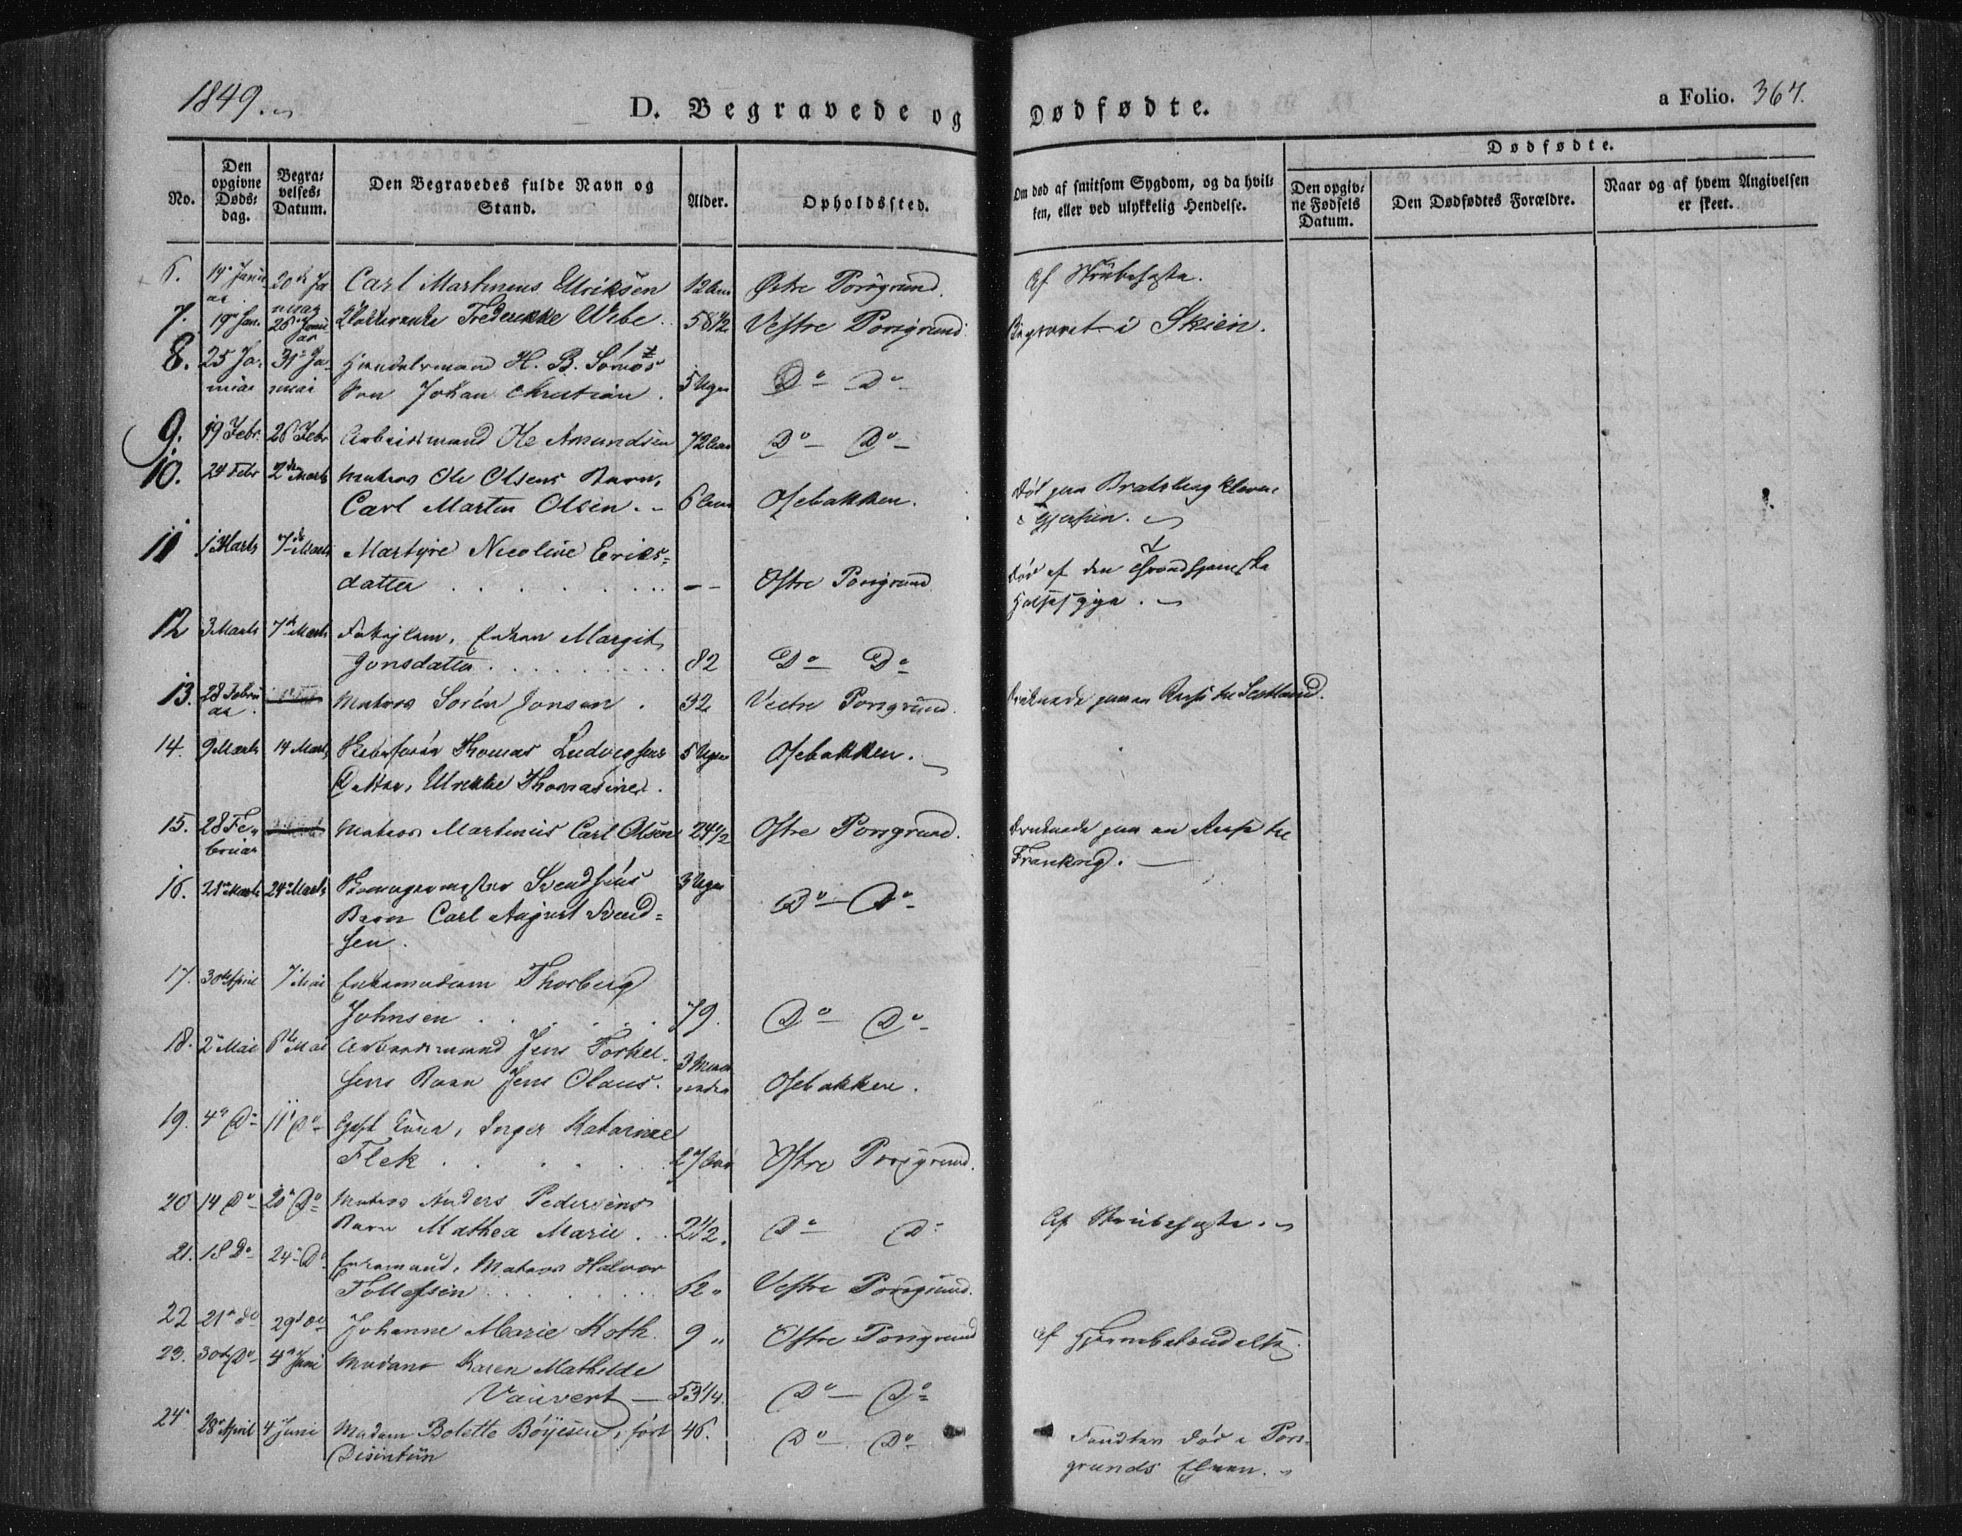 1849.
D. Begravede og Dødfødte.
a Folio. 367.
Dødfødte.
No.
Den opgivne Døds-dag.
Begra-velses-Datum.
Den Begravedes fulde Navn og Stand.
Alder.
Opholdssted.
Om død af smitsom Sygdom, og da hvil-ken, eller ved ulykkelig Hendelse.
Den opgiv-ne Fødsels Datum.
Den Dødfødtes Forældre.
Naar og af hvem Angivelsen er skeet.
6. 20de Ja Carl Martineus Ulriksen 12 Østre Porsgrund. Af Strubehoste.
nuar
7. 19 Jan. 26 Frederikke Webe 58 1/2 Vestre Porsgrund. Begravet i Skien.
8. 25 Ja- 31 Ja- Handelsmand H. B. Sømos
nuar nuar Søn Johan Christian. 5 Uger Do Do
9. 19 Febr. 26 Febr Arbeidsmand Ole Amundsen 72 Do Do
10. 24 Febr 2den Marts Matros Ole Olsens Barn,
Carl Martin Olsen. 6 Osebakken. Død paa Bratsberg Kleven
i Gjerpen.
11 1 Marts 7de Marts Martyre Nicoline Eriks=
datter - - Østre Porsgrund Død af den Throndhjemske
12 3 Marts 7de Marts Fattiglem, Enken Margit
Jonsdatter 82 Do Do
13. 28 Febru
ar. Matros Søren Jonsen. 32 Vestre Porsgrund. Druknede paa en Reise til Scotland.
14. 9 Marts 14 Marts Thomas Ludvigsens 5 Uger Osebakken.
Datter, Ulrikke Thomasine.
15. 28 Fe-
bruar Matros Martinius Carl Olsen 24 1/2 Østre Porsgrund. Druknede paa en Reise til
Frankrig.
16. 24 Marts Svendsens 3 Uger
Barn Carl August Svend= Do Do
sen.
17. 30te April 7 Mai Enkemadam Thorberg
Johnsen 79. Do Do
18. 2 Mai 6te Mai Arbeidsmand Jens Torkel-
sens Barn Jens Olaus. 3 Maa
neder Osebakken.
19. 4 Do 11 Do Gift Inger Katarine
Flek 27 Østre Porsgrund.
20 14 Do 20 Do Matros Anders Pedersens
Barn Mathea Marie. 2 1/2. Do Do Af Strubehoste.
21. 18 Do 24 Do Enkemand, Matros Halvor
Tollefsen 62 Vestre Porsgrund.
22 21 do 29 do Johanne Marie Hoth. 9 " Østre Porsgrund Af Hjernebetændelse.
23. 30te Do 4 Juni Madam Karen Mathilde
Vauvert 53 1/4. Do Do
24 28 April 4 Juni Madam Bolette Böyesen, født 46. Do Do Fundten død i Pors-
Disintun grunds Elven.